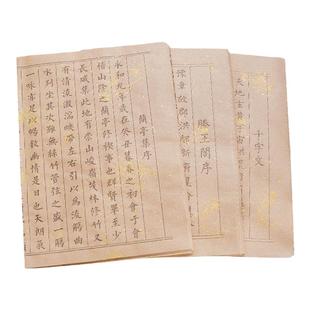 千字文
天地玄黃宇宙
滕王閣序
豫章故郡洪都新府星分
蘭亭集序
永和九年歲在癸丑暮春之初會于會
稽山陰之蘭亭修禊事也群賢畢至少
長咸集此地有崇山峻嶺茂林修竹又
有清流激湍映帶左右引以為流觴曲
水列坐其次雖無絲竹管弦之盛一觴
一咏亦足以暢敘幽情是日也天朗氣